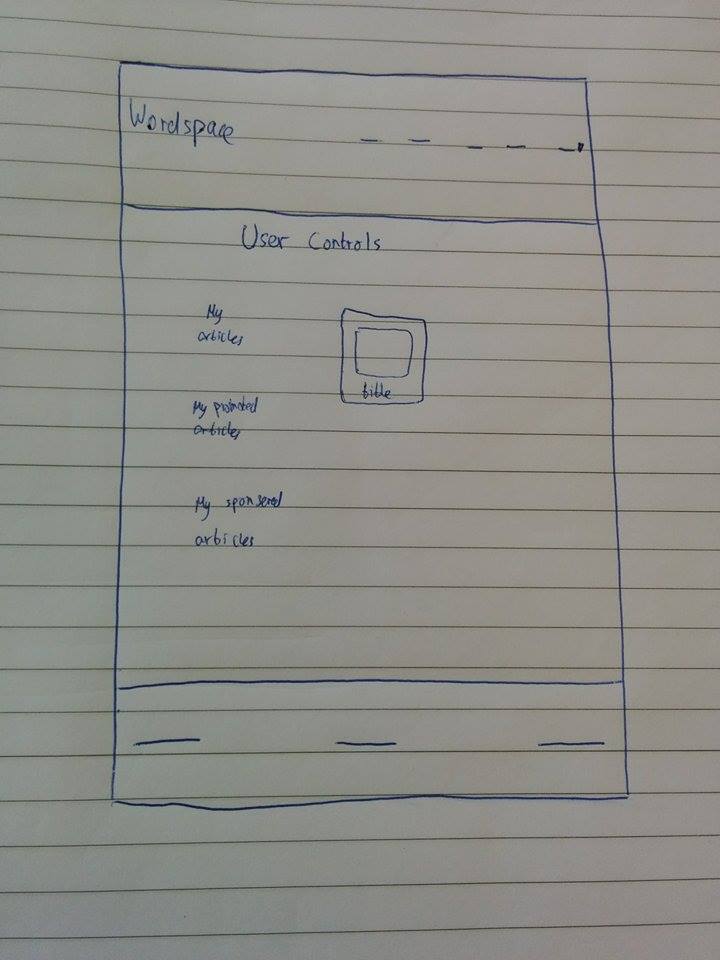 Wordspace
User Controls
My
articles
title
My promoted
articles
My sponsered
articles